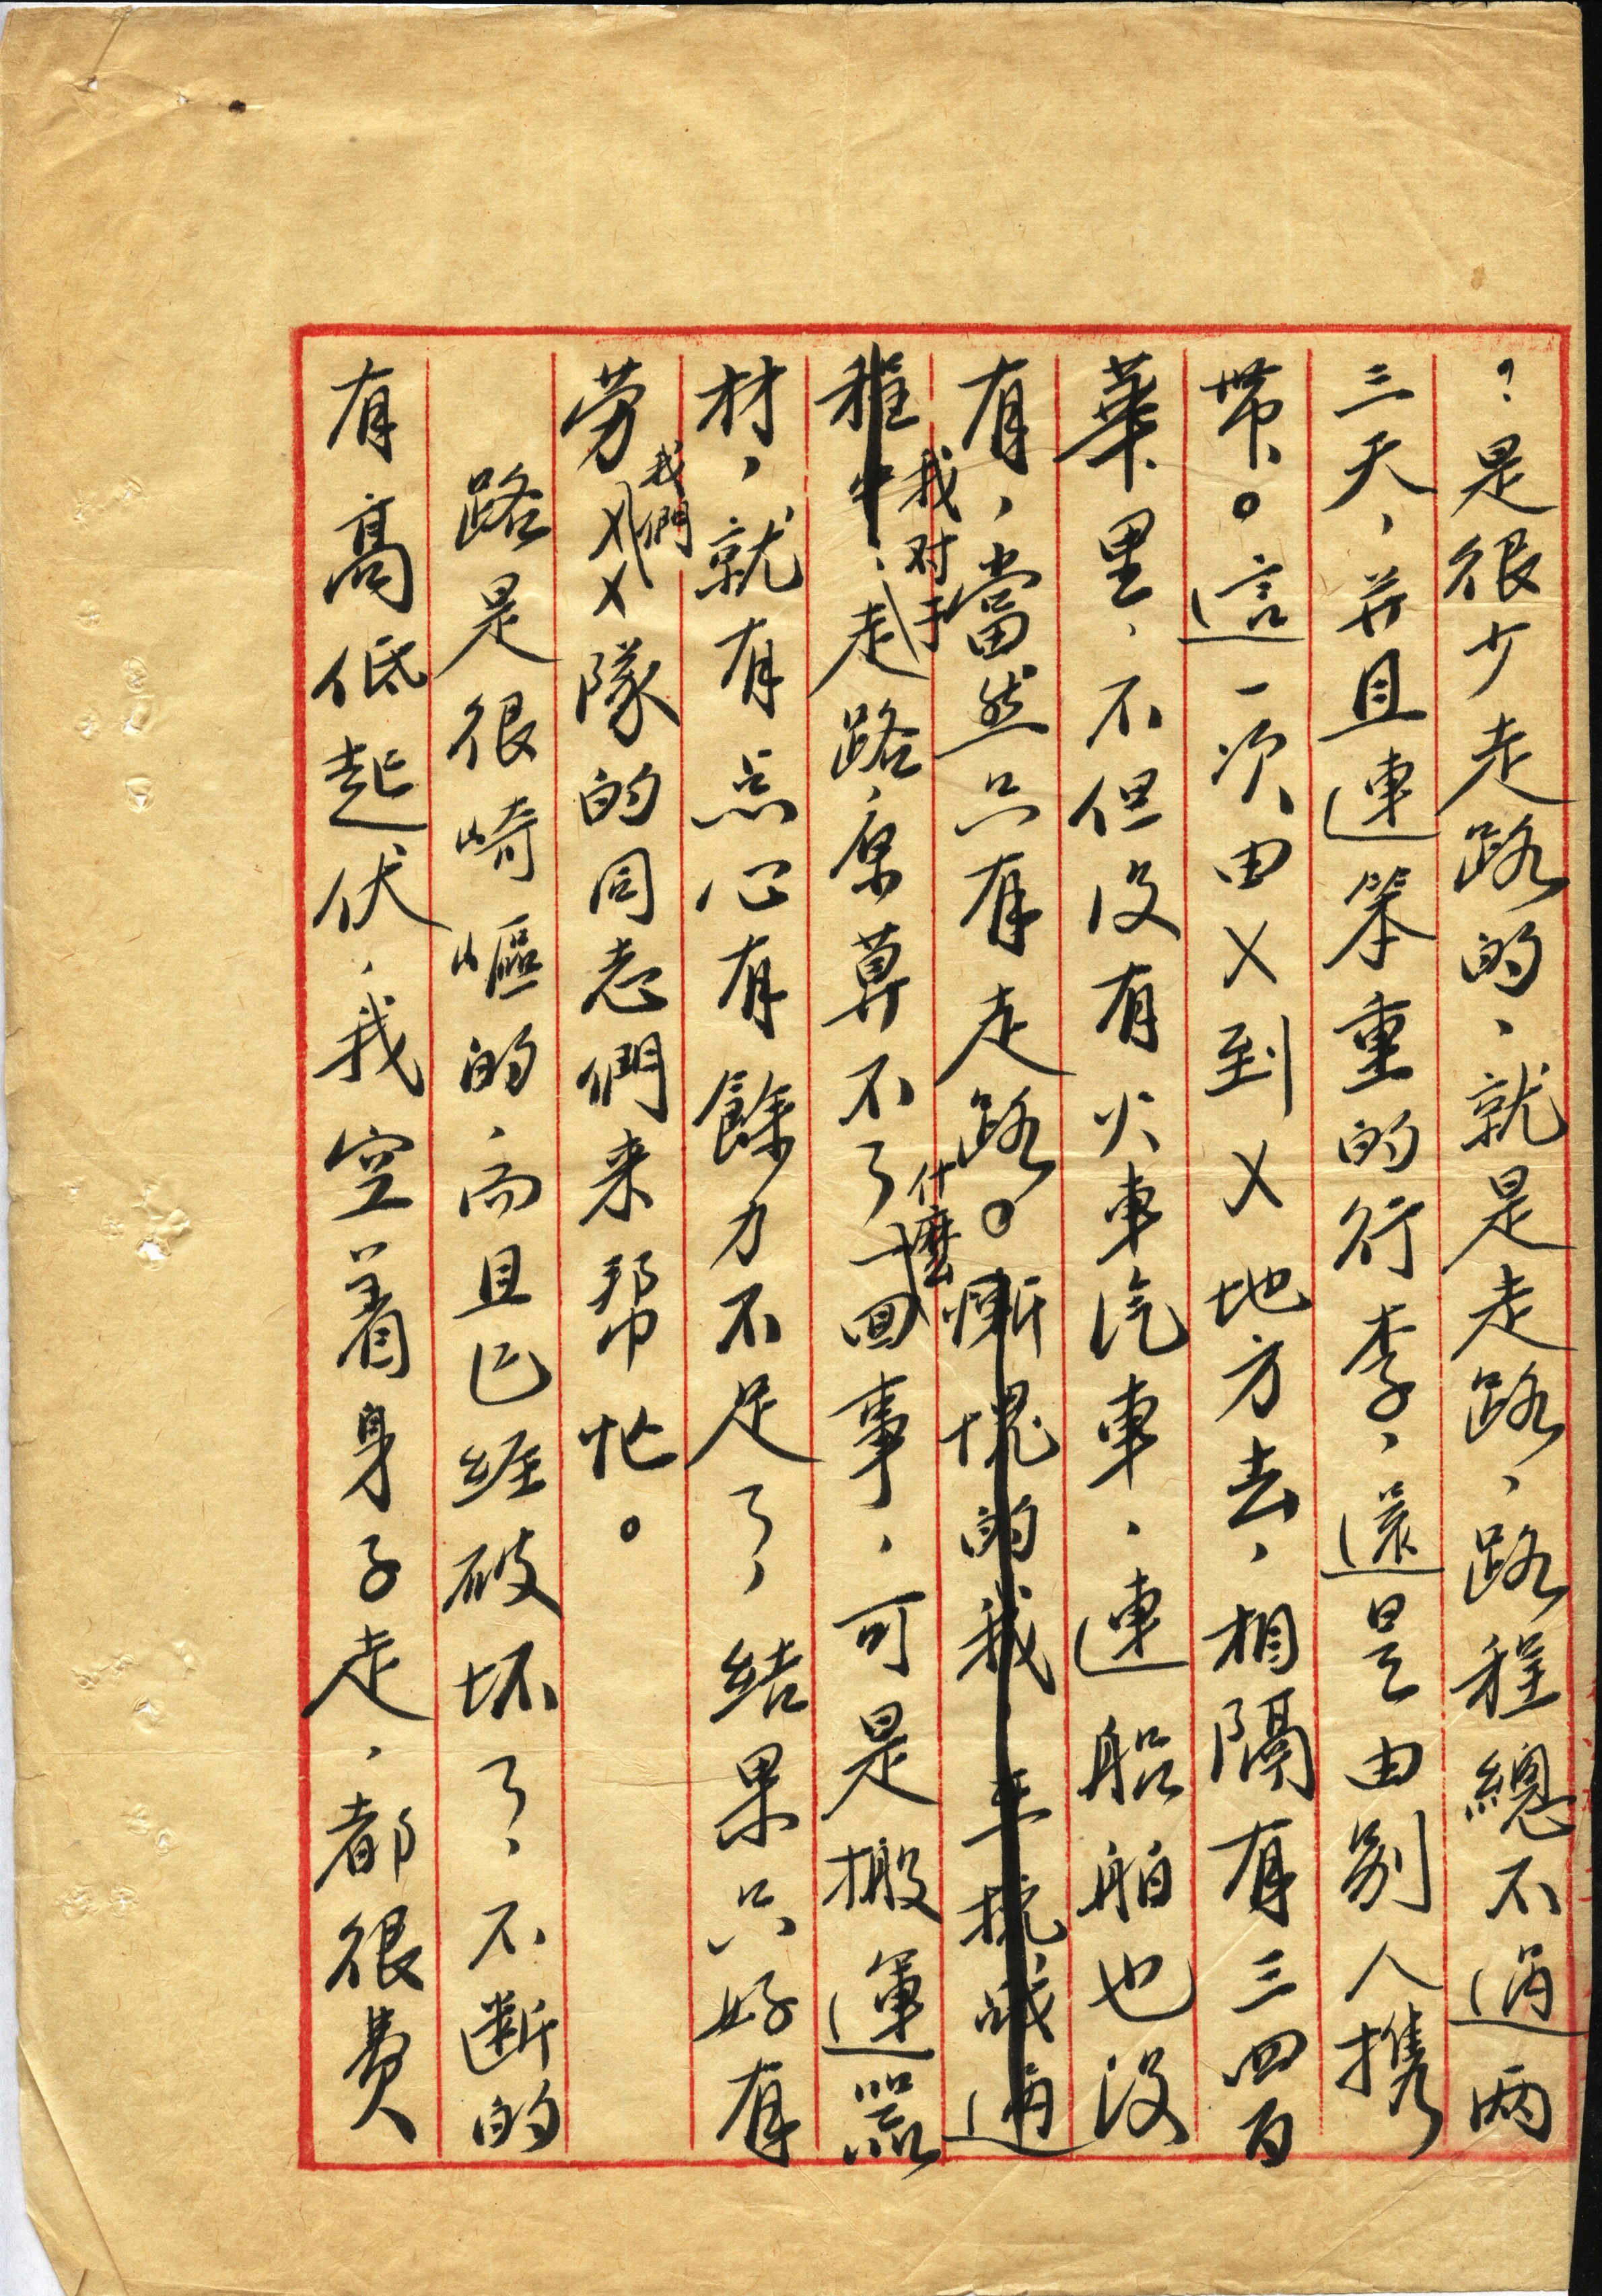 ？是很少走路的、就是走路、路程總不過兩
三天，并且連笨重的行李、還是由别人携
带。這一次由X到X地方去，相隔有三四百
華里、不但没有火車汽車、連船舶也没
有，當然只有走路。慚愧的我
我对于
走路原算不了一回事，可是搬運器
什麽
材，就有点心有餘力不足了，結果只好有
劳XX隊的同志們来帮忙。
我們
路是很崎嶇的、而且已經破坏了、不断的
有高低起伏，我空着身子走，都很费